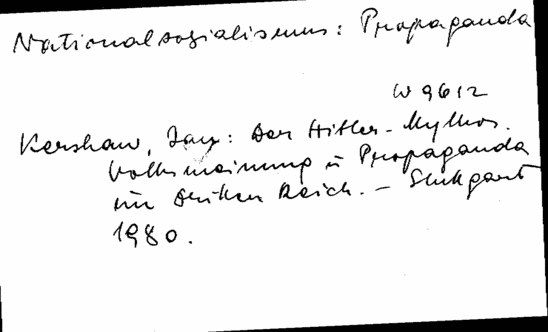 Nationalsozialismus: Propaganda
W 9612
Kershaw, Jan: Der Hitler-Mythos.
Volksmeinung u Propaganda
im Dritten Reich. – Stuttgart
1980.